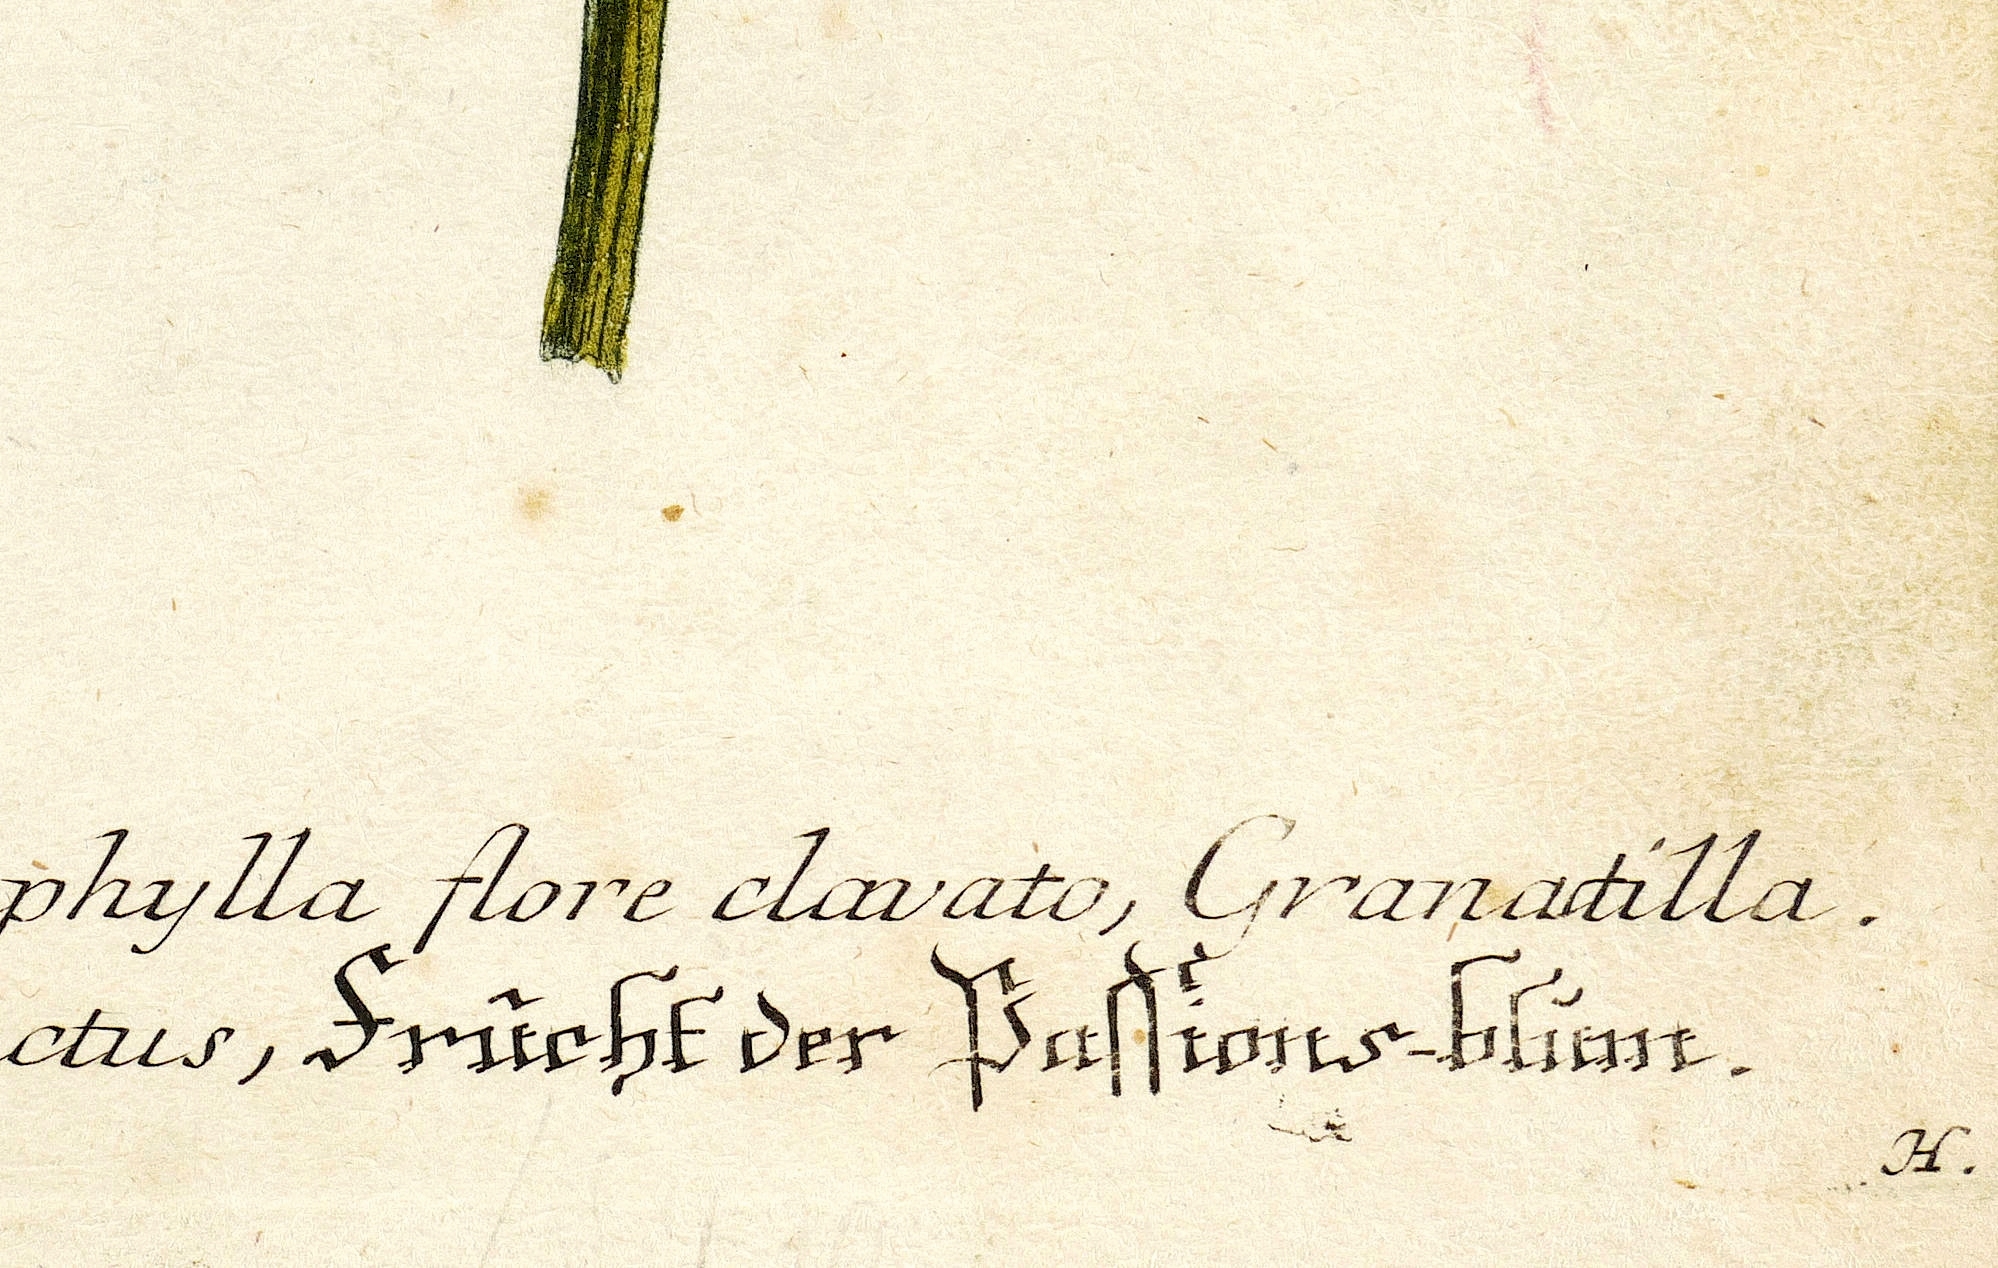 phylla flore clavato, Granatilla.
ctus, Frücht der Passions-blüm.
H.